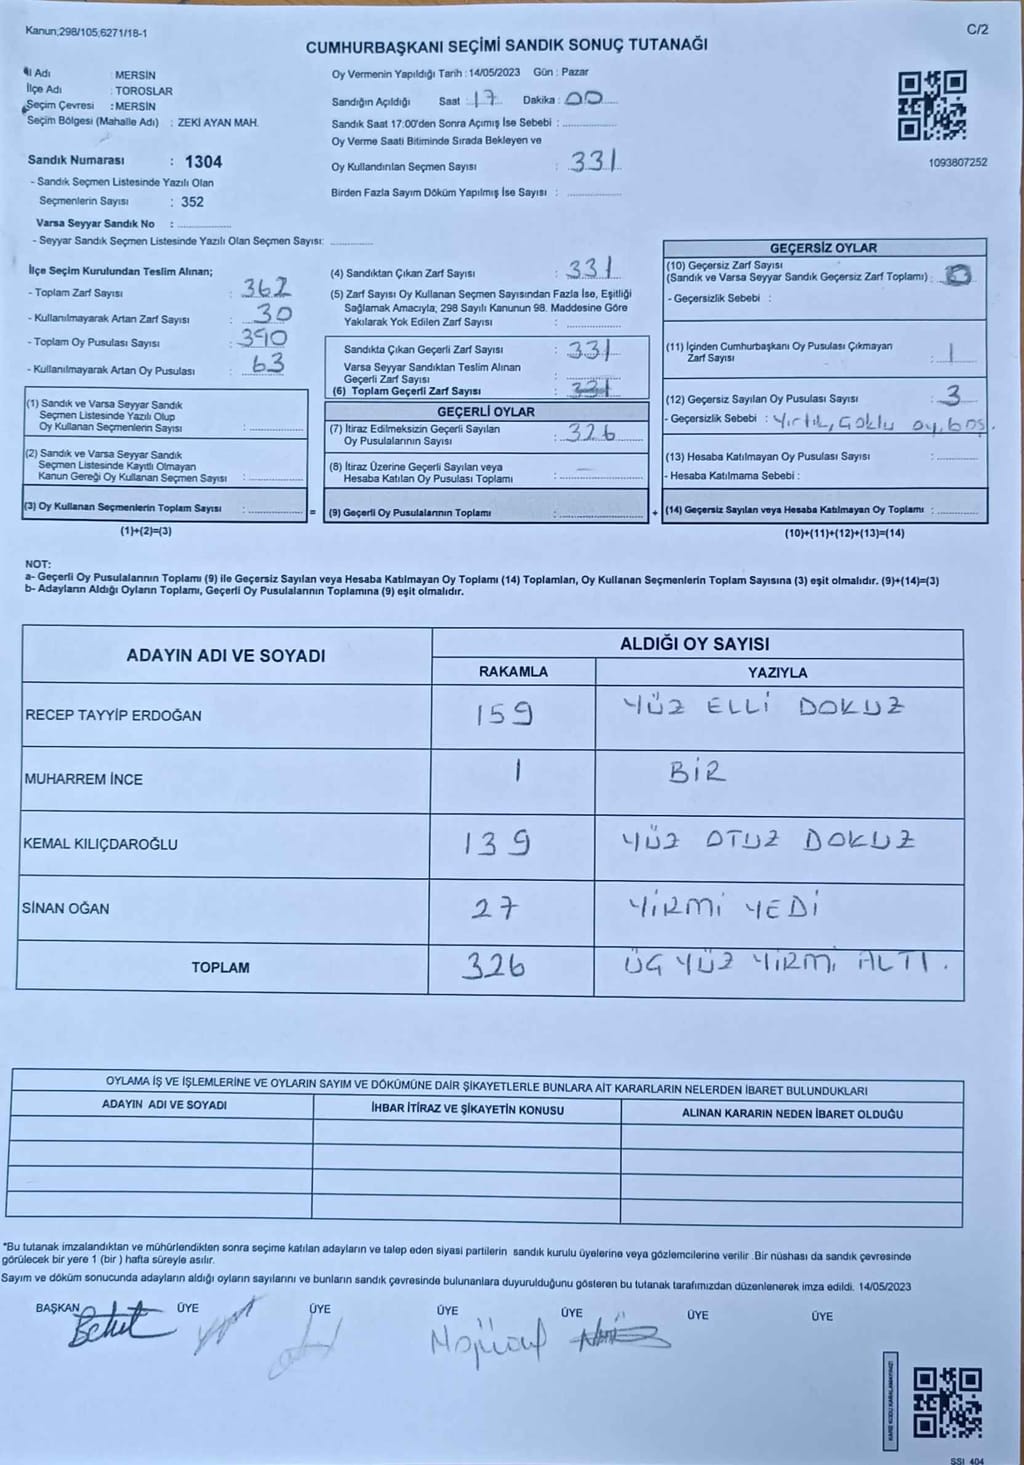 Kanun;298/105;6271/18-1
C/2
CUMHURBAŞKANI SEÇİMİ SANDIK SONUÇ TUTANAĞI
İl Adı : MERSİN
İlçe Adı : TOROSLAR
Seçim Çevresi : MERSİN
Seçim Bölgesi (Mahalle Adı) : ZEKİ AYAN MAH.
Sandık Numarası : 1304
- Sandık Seçmen Listesinde Yazılı Olan
Seçmenlerin Sayısı : 352
Varsa Seyyar Sandık No :
- Seyyar Sandık Seçmen Listesinde Yazılı Olan Seçmen Sayısı:
Oy Vermenin Yapıldığı Tarih : 14/05/2023 Gün : Pazar
Sandığın Açıldığı Saat : 17 Dakika : 00
Sandık Saat 17:00'den Sonra Açımış İse Sebebi :
Oy Verme Saati Bitiminde Sırada Bekleyen ve
Oy Kullandırılan Seçmen Sayısı : 331
Birden Fazla Sayım Döküm Yapılmış İse Sayısı :
1093807252
İlçe Seçim Kurulundan Teslim Alınan;
- Toplam Zarf Sayısı : 362
- Kullanılmayarak Artan Zarf Sayısı : 30
- Toplam Oy Pusulası Sayısı : 390
- Kullanılmayarak Artan Oy Pusulası : 63
(1) Sandık ve Varsa Seyyar Sandık
Seçmen Listesinde Yazılı Olup
Oy Kullanan Seçmenlerin Sayısı :
(2) Sandık ve Varsa Seyyar Sandık
Seçmen Listesinde Kayıtlı Olmayan
Kanun Gereği Oy Kullanan Seçmen Sayısı :
(3) Oy Kullanan Seçmenlerin Toplam Sayısı : =
(1)+(2)=(3)
(4) Sandıktan Çıkan Zarf Sayısı : 331
(5) Zarf Sayısı Oy Kullanan Seçmen Sayısından Fazla İse, Eşitliği
Sağlamak Amacıyla, 298 Sayılı Kanunun 98. Maddesine Göre
Yakılarak Yok Edilen Zarf Sayısı :
Sandıkta Çıkan Geçerli Zarf Sayısı : 331
Varsa Seyyar Sandıktan Teslim Alınan
Geçerli Zarf Sayısı :
(6) Toplam Geçerli Zarf Sayısı : 331
GEÇERLİ OYLAR
(7) İtiraz Edilmeksizin Geçerli Sayılan
Oy Pusulalarının Sayısı : 326
(8) İtiraz Üzerine Geçerli Sayılan veya
Hesaba Katılan Oy Pusulası Toplamı : —
(9) Geçerli Oy Pusulalarının Toplamı : +
GEÇERSİZ OYLAR
(10) Geçersiz Zarf Sayısı
(Sandık ve Varsa Seyyar Sandık Geçersiz Zarf Toplamı) :
- Geçersizlik Sebebi :
(11) İçinden Cumhurbaşkanı Oy Pusulası Çıkmayan
Zarf Sayısı : 1
(12) Geçersiz Sayılan Oy Pusulası Sayısı : 3
- Geçersizlik Sebebi : Yırtık, Çoklu oy, boş.
(13) Hesaba Katılmayan Oy Pusulası Sayısı :
- Hesaba Katılmama Sebebi :
(14) Geçersiz Sayılan veya Hesaba Katılmayan Oy Toplamı :
(10)+(11)+(12)+(13)=(14)
NOT:
a- Geçerli Oy Pusulalarının Toplamı (9) ile Geçersiz Sayılan veya Hesaba Katılmayan Oy Toplamı (14) Toplamları, Oy Kullanan Seçmenlerin Toplam Sayısına (3) eşit olmalıdır. (9)+(14)=(3)
b- Adayların Aldığı Oyların Toplamı, Geçerli Oy Pusulalarının Toplamına (9) eşit olmalıdır.
ADAYIN ADI VE SOYADI
ALDIĞI OY SAYISI
RAKAMLA YAZIYLA
RECEP TAYYİP ERDOĞAN 159 YÜZ ELLİ DOKUZ
MUHARREM İNCE 1 BİR
KEMAL KILIÇDAROĞLU 139 YÜZ OTUZ DOKUZ
SİNAN OĞAN 27 YİRMİ YEDİ
TOPLAM 326 ÜÇ YÜZ YİRMİ ALTI.
OYLAMA İŞ VE İŞLEMLERİNE VE OYLARIN SAYIM VE DÖKÜMÜNE DAİR ŞİKAYETLERLE BUNLARA AİT KARARLARIN NELERDEN İBARET BULUNDUKLARI
ADAYIN ADI VE SOYADI İHBAR İTİRAZ VE ŞİKAYETİN KONUSU ALINAN KARARIN NEDEN İBARET OLDUĞU
*Bu tutanak imzalandıktan ve mühürlendikten sonra seçime katılan adayların ve talep eden siyasi partilerin sandık kurulu üyelerine veya gözlemcilerine verilir .Bir nüshası da sandık çevresinde
görülecek bir yere 1 (bir ) hafta süreyle asılır.
Sayım ve döküm sonucunda adayların aldığı oyların sayılarını ve bunların sandık çevresinde bulunanlara duyurulduğunu gösteren bu tutanak tarafımızdan düzenlenerek imza edildi. 14/05/2023
BAŞKAN ÜYE ÜYE ÜYE ÜYE ÜYE ÜYE
KARE KODU KARALAMAYINIZ!
SSI_404